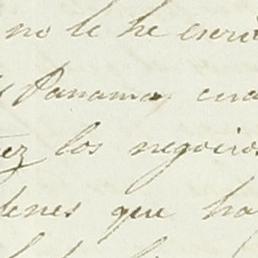 no le he escrit
Panama cua
ez los negocios
denes que ha